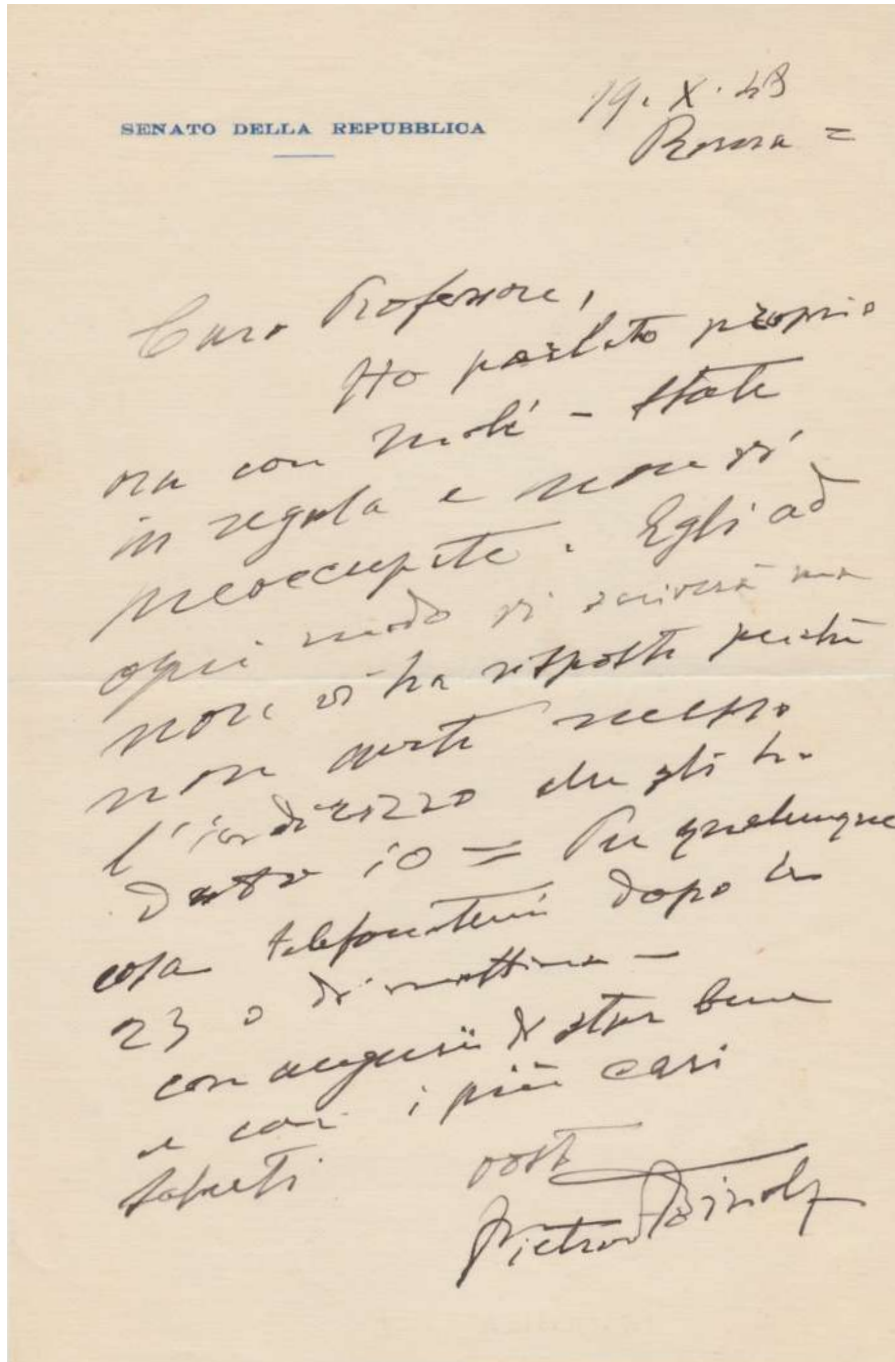 SENATO DELLA REPUBBLICA
19. X. 48
Roma =
Caro Professore,
Ho parlato proprio
ora con Molè - State
in regola e non vi
preoccupate. Egli ad
ogni modo vi scriverà ma
non vi ha risposto perchè
non aveste messo
l'indirizzo che gli ho
dato io = Per qualunque
cosa telefonatemi dopo le
23 o di mattina -
con auguri di star bene
e coi i più cari
saluti
vost
Pietro